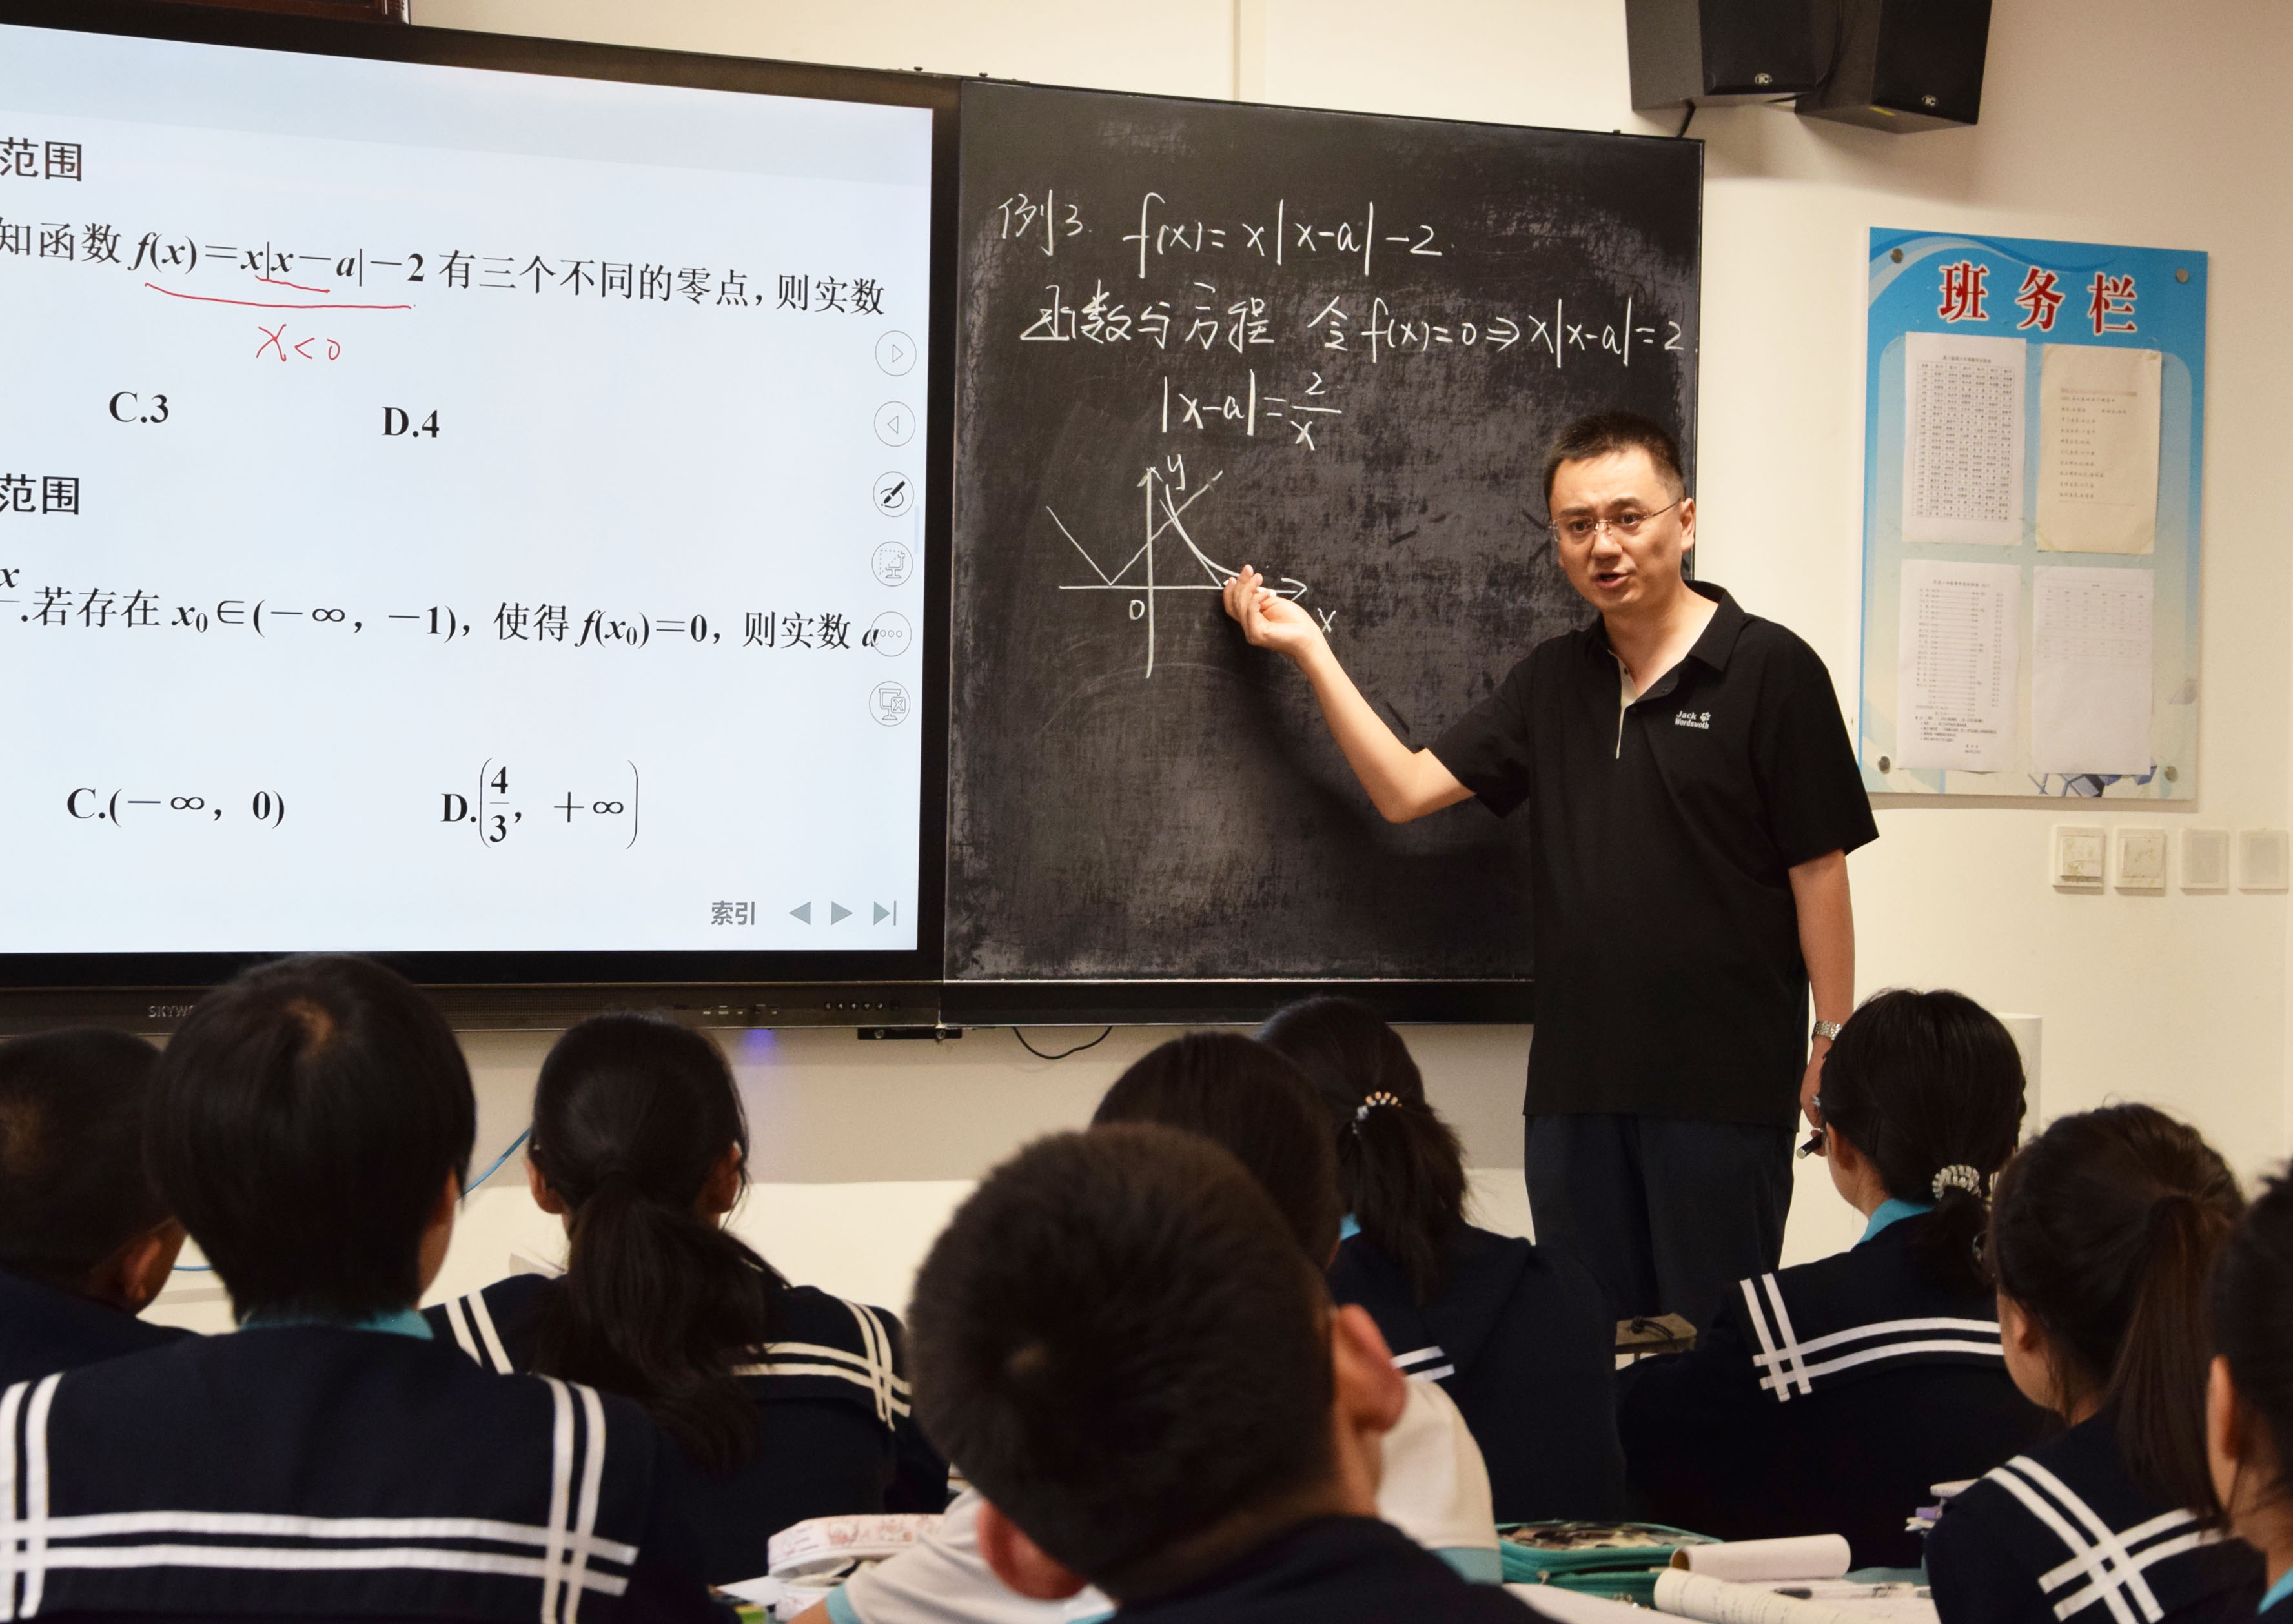 范围
知函数 f(x)=x|x-a|-2 有三个不同的零点，则实数
x<0
C.3 D.4
范围
x
.若存在 x₀∈(-∞，-1)，使得 f(x₀)=0，则实数 a
C.(-∞，0) D.(4/3，+∞)
索引
SKYWO
例3. f(x)=x|x-a|-2.
函数与方程 令f(x)=0⇒x|x-a|=2.
|x-a|=2/x
y
0
x
班务栏
Jack
Wordswoth